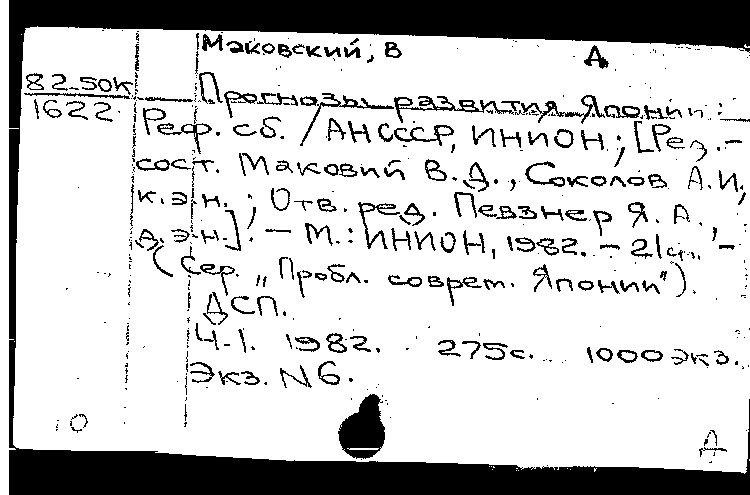 Маковский, В Д
82-50К
1622
Прогнозы развития Японии:
Реф. сб. / АН СССР, ИНИОН; [Рез.-
сост. Маковий В.Д., Соколов А.И,
к.э.н.; Отв. ред. Певзнер Я. А.,
д.э.н.]. – М.: ИНИОН, 1982. – 21см. –
(Сер. „Пробл. соврем. Японии").
ДСП.
Ч-1. 1982. 275с. 1000 экз.
Экз. N6.
10 Д